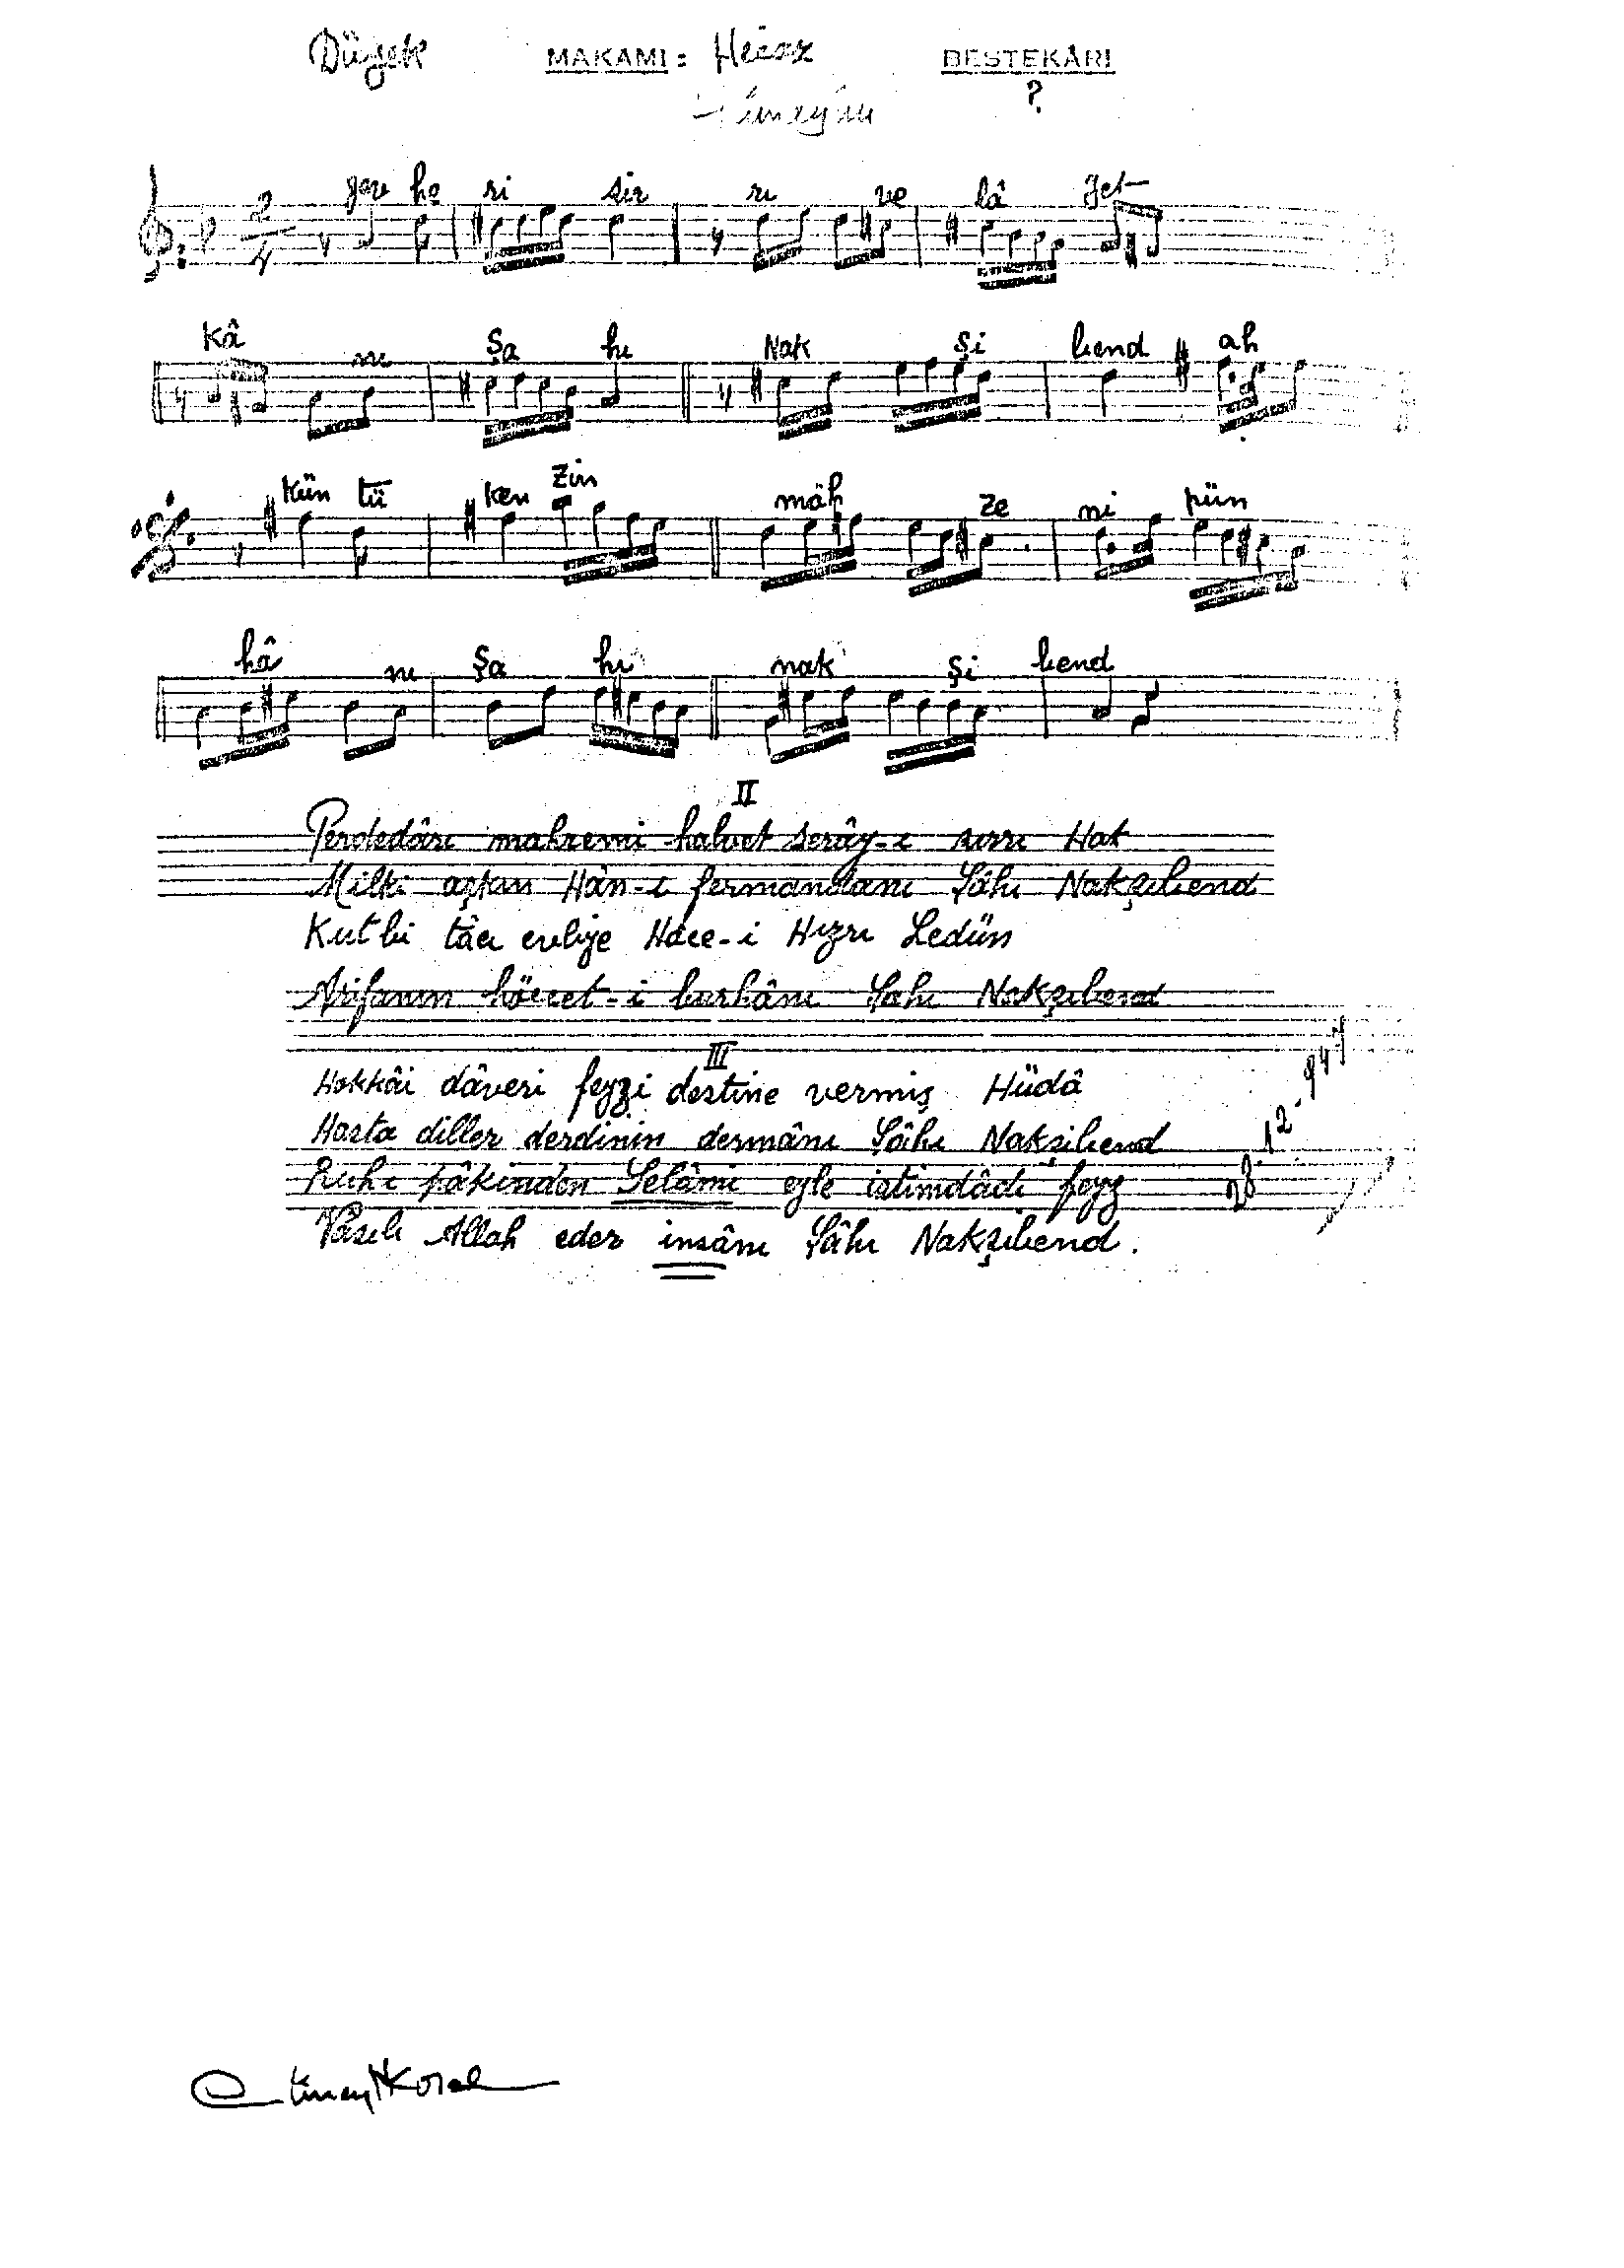 Düyek MAKAMI : Hicaz BESTEKÂRI
?
gev he ri sir rı ve lâ yet
kâ nı Şa hı Nak şi bend ah
Kün tü ken zin mäh ze ni pün
hâ nı Şa hı nak şi bend
II
Perdedârı mahremi halvet serây-ı sırrı Hak
Milki aşkın Hân-ı fermandanı Şâhı Nakşıbend
Kutbi tâcı evliye Hâce-i Hızrı Ledün
Arifanın höccet-i burhânı Şahı Nakşıbend
III
Hakkâi dâveri feyzi destine vermiş Hüdâ
Hasta diller derdinin dermânı Şâhı Nakşibend
Ruhı pâkinden Selâmi eyle istimdâdı feyz
Vasılı Allah eder insânı Şâhı Nakşıbend.
28.12-974